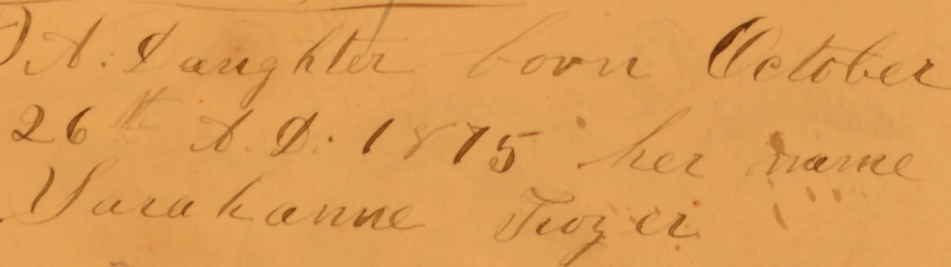 A. Daughter born October
26th A. D. 1875 her name
Sarahanne Troyer